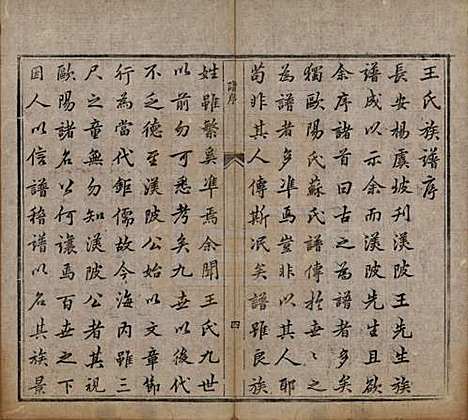 王氏族譜序
長安楊虞坡刊渼陂王先生族
譜成以示余而渼陂先生且欲
余序諸首曰古之為譜者多矣
獨歐陽氏蘇氏譜傳於世〻之
為譜者多準焉豈非以其人耶
苟非其人傳斯泯矣譜雖良族
譜序
四
姓雖繁奚準焉余聞王氏九世
以前勿可悉考矣九世以後代
不乏德至渼陂公始以文章節
行為當代鉅儒故今海內雖三
尺之童無勿知渼陂公者其視
歐陽諸名公何讓焉百世之下
因人以信譜稽譜以名其族景